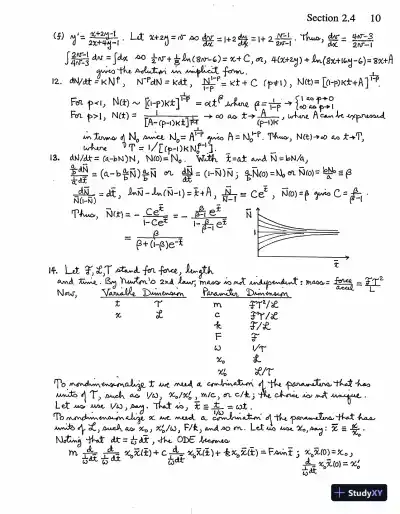 Section 2.4 10
(j) y' = (x+2y-1)/(2x+4y-1). Let x+2y=v so dv/dx = 1+2 dy/dx = 1+2 (v-1)/(2v-1). Thus, dv/dx = (4v-3)/(2v-1)
∫ (2v-1)/(4v-3) dv = ∫dx so ½v + ⅛ ln(8v-6) = x+C, or, 4(x+2y)+ln(8x+16y-6)=8x+A
gives the solution in implicit form.
12. dN/dt = κN^p, N^-p dN = κdt, N^(1-p)/(1-p) = κt + C (p≠1), N(t) = [(1-p)κt+A]^(1/(1-p))
For p<1, N(t) ~ [(1-p)κt]^(1/(1-p)) = αt^β where β = 1/(1-p) → { 1 as p→0
∞ as p→1
For p>1, N(t) = 1/[A-(p-1)κt]^(1/(p-1)) → ∞ as t → A/((p-1)κ), where A can be expressed
in terms of N₀ since N₀ = A^(1/(1-p)) gives A = N₀^(1-p). Thus, N(t)→∞ as t→T,
where T = 1/[(p-1)κN₀^(p-1)].
13. dN/dt = (a-bN)N, N(0)=N₀. With t̄=at and N̄=bN/a,
(a/b dN̄)/(1/a dt̄) = (a-b a/b N̄) a/b N̄ or dN̄/dt̄ = (1-N̄)N̄; a/b N̄(0)=N₀ or N̄(0) = bN₀/a ≡ β
dN̄/(N̄(1-N̄)) = dt̄, ln N̄ - ln(N̄-1) = t̄+A, N̄/(N̄-1) = Ce^t̄, N̄(0)=β gives C = β/(β-1).
Thus, N̄(t̄) = - Ce^t̄/(1-Ce^t̄) = - (β/(β-1) e^t̄)/(1-β/(β-1) e^t̄)
= β/(β+(1-β)e^-t̄)
N̄
t̄
14. Let F, L, T stand for force, length
and time. By Newton's 2nd law, mass is not independent: mass = force/accel = FT²/L
Now, Variable Dimension Parameter Dimension
t T m FT²/L
x L c FT/L
k F/L
F F
ω 1/T
x₀ L
x₀' L/T
To nondimensionalize t we need a combination of the parameters that has
units of T, such as 1/ω, x₀/x₀', m/c, or c/k; the choice is not unique.
Let us use 1/ω, say. That is, t̄ ≡ t/(1/ω) = ωt.
To nondimensionalize x we need a combination of the parameters that has
units of L, such as x₀, x₀'/ω, F/k, and so on. Let us use x₀, say: x̄ ≡ x/x₀.
Noting that dt = 1/ω dt̄, the ODE becomes
m d/(1/ω dt̄) d/(1/ω dt̄) x₀x̄(t̄) + c d/(1/ω dt̄) x₀x̄(t̄) + k x₀x̄(t̄) = F sin t̄; x₀x̄(0)=x₀,
d/(1/ω dt̄) x₀x̄(0) = x₀'
StudyXY